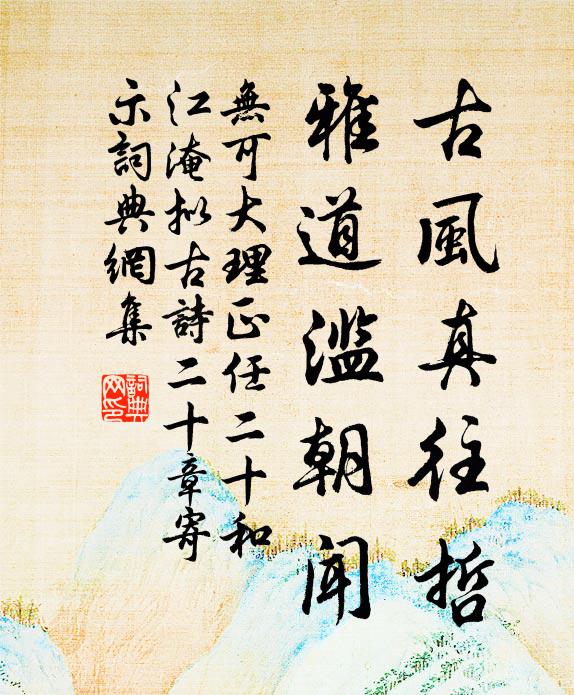 古風真往哲
雅道濫朝聞
無可大理正任二十和
江淹擬古詩二十章寄
示詞典網集
詞典
网印